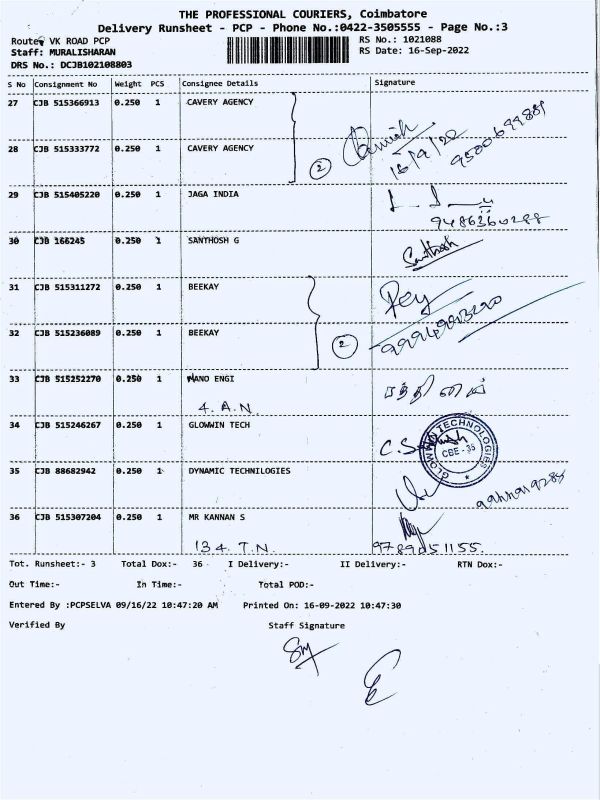 THE PROFESSIONAL COURIERS, Coimbatore
Delivery Runsheet - PCP - Phone No.:0422-3505555 - Page No.:3
Route: VK ROAD PCP
RS No.: 1021088
Staff: MURALISHARAN
RS Date: 16-Sep-2022
DRS No.: DCJB102108803
S No Consignment No Weight PCS Consignee Details Signature
27 CJB 515366913 0.250 1 CAVERY AGENCY
28 CJB 515333772 0.250 1 CAVERY AGENCY
2 16/9/22
29 CJB 515405220 0.250 1 JAGA INDIA
9486360288
30 CJB 166245 0.250 1 SANTHOSH G Santhosh
31 CJB 515311272 0.250 1 BEEKAY
32 CJB 515236089 0.250 1 BEEKAY
2
33 CJB 515252270 0.250 1 NANO ENGI
4. A.N.
34 CJB 515246267 0.250 1 GLOWWIN TECH
GLOWWIN TECHNOLOGIES
CBE - 35
35 CJB 88682942 0.250 1 DYNAMIC TECHNILOGIES
36 CJB 515307204 0.250 1 MR KANNAN S
134. T.N. 9789051155.
Tot. Runsheet:- 3 Total Dox:- 36 I Delivery:- II Delivery:- RTN Dox:-
Out Time:- In Time:- Total POD:-
Entered By :PCPSELVA 09/16/22 10:47:20 AM Printed On: 16-09-2022 10:47:30
Verified By Staff Signature